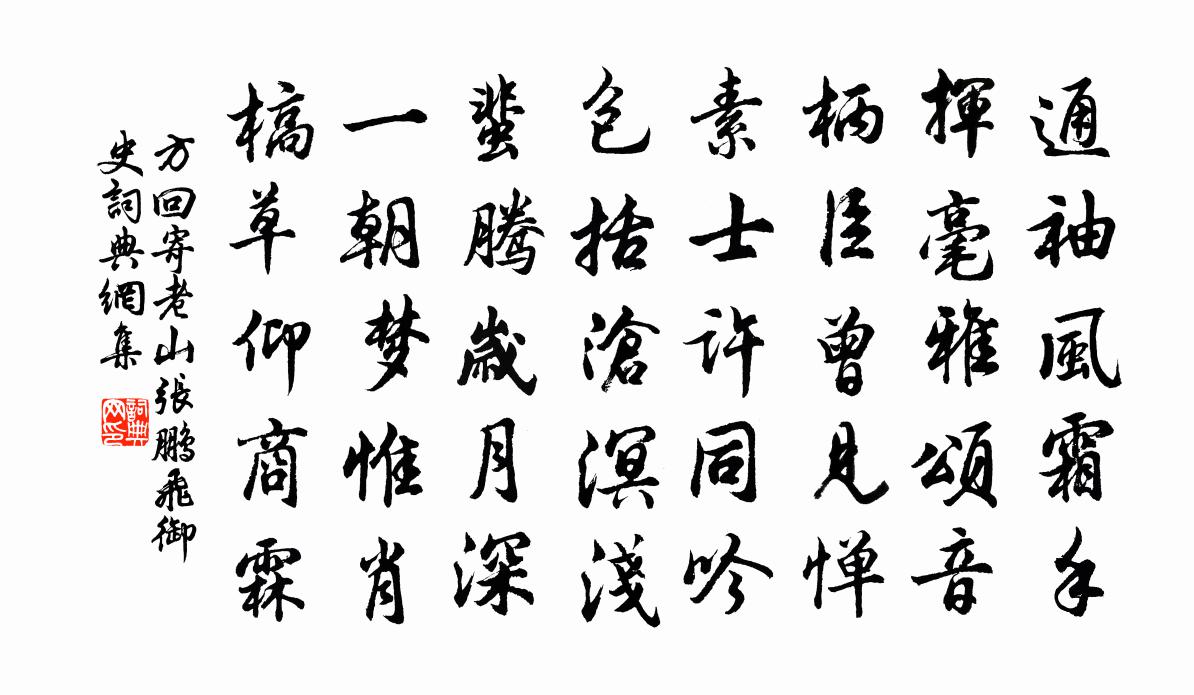 通袖風霜手
揮毫雅頌音
柄臣曾見憚
素士許同吟
包括滄溟淺
蜚騰歲月深
一朝梦惟肖
槁草仰商霖
方回寄老山張鵬飛御
史詞典網集
詞典
网印